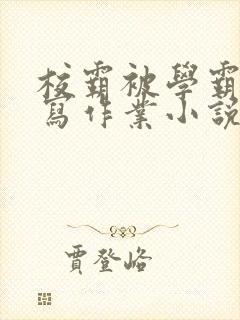 校霸被學霸
寫作業小說
賈登峪